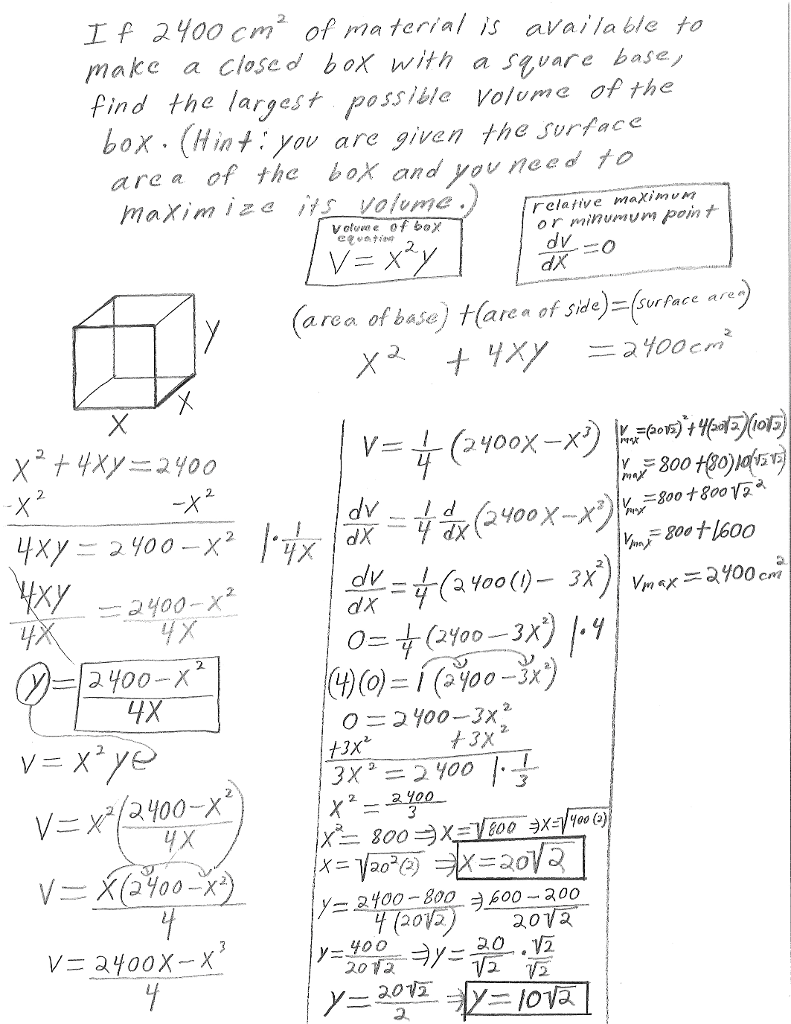 If 2400 cm² of material is available to
make a closed box with a square base,
find the largest possible volume of the
box. (Hint: you are given the surface
area of the box and you need to
maximize its volume.)
volume of box
equation
V = x²y
relative maximum
or minumum point
dv/dx = 0
(area of base) + (area of side) = (surface area)
x² + 4xy = 2400 cm²
y
x
x
x² + 4xy = 2400
-x² -x²
4xy = 2400 - x² | · 1/4x
4xy/4x = (2400 - x²)/4x
y = (2400 - x²)/4x
V = x²y
V = x²((2400 - x²)/4x)
V = x(2400 - x²)/4
V = (2400x - x³)/4
V = 1/4 (2400x - x³)
dv/dx = 1/4 d/dx (2400x - x³)
dv/dx = 1/4 (2400(1) - 3x²)
0 = 1/4 (2400 - 3x²) | · 4
(4)(0) = 1(2400 - 3x²)
0 = 2400 - 3x²
+3x² +3x²
3x² = 2400 | · 1/3
x² = 2400/3
x² = 800 ⇒ x = √800 ⇒ x = √400(2)
x = √20²(2) ⇒ x = 20√2
y = (2400 - 800)/4(20√2) ⇒ (600 - 200)/20√2
y = 400/20√2 ⇒ y = 20/√2 · √2/√2
y = 20√2/2 ⇒ y = 10√2
Vmax = (20√2)² + 4(20√2)(10√2)
Vmax = 800 + (80)10(√2√2)
Vmax = 800 + 800√2²
Vmax = 800 + 1600
Vmax = 2400 cm²